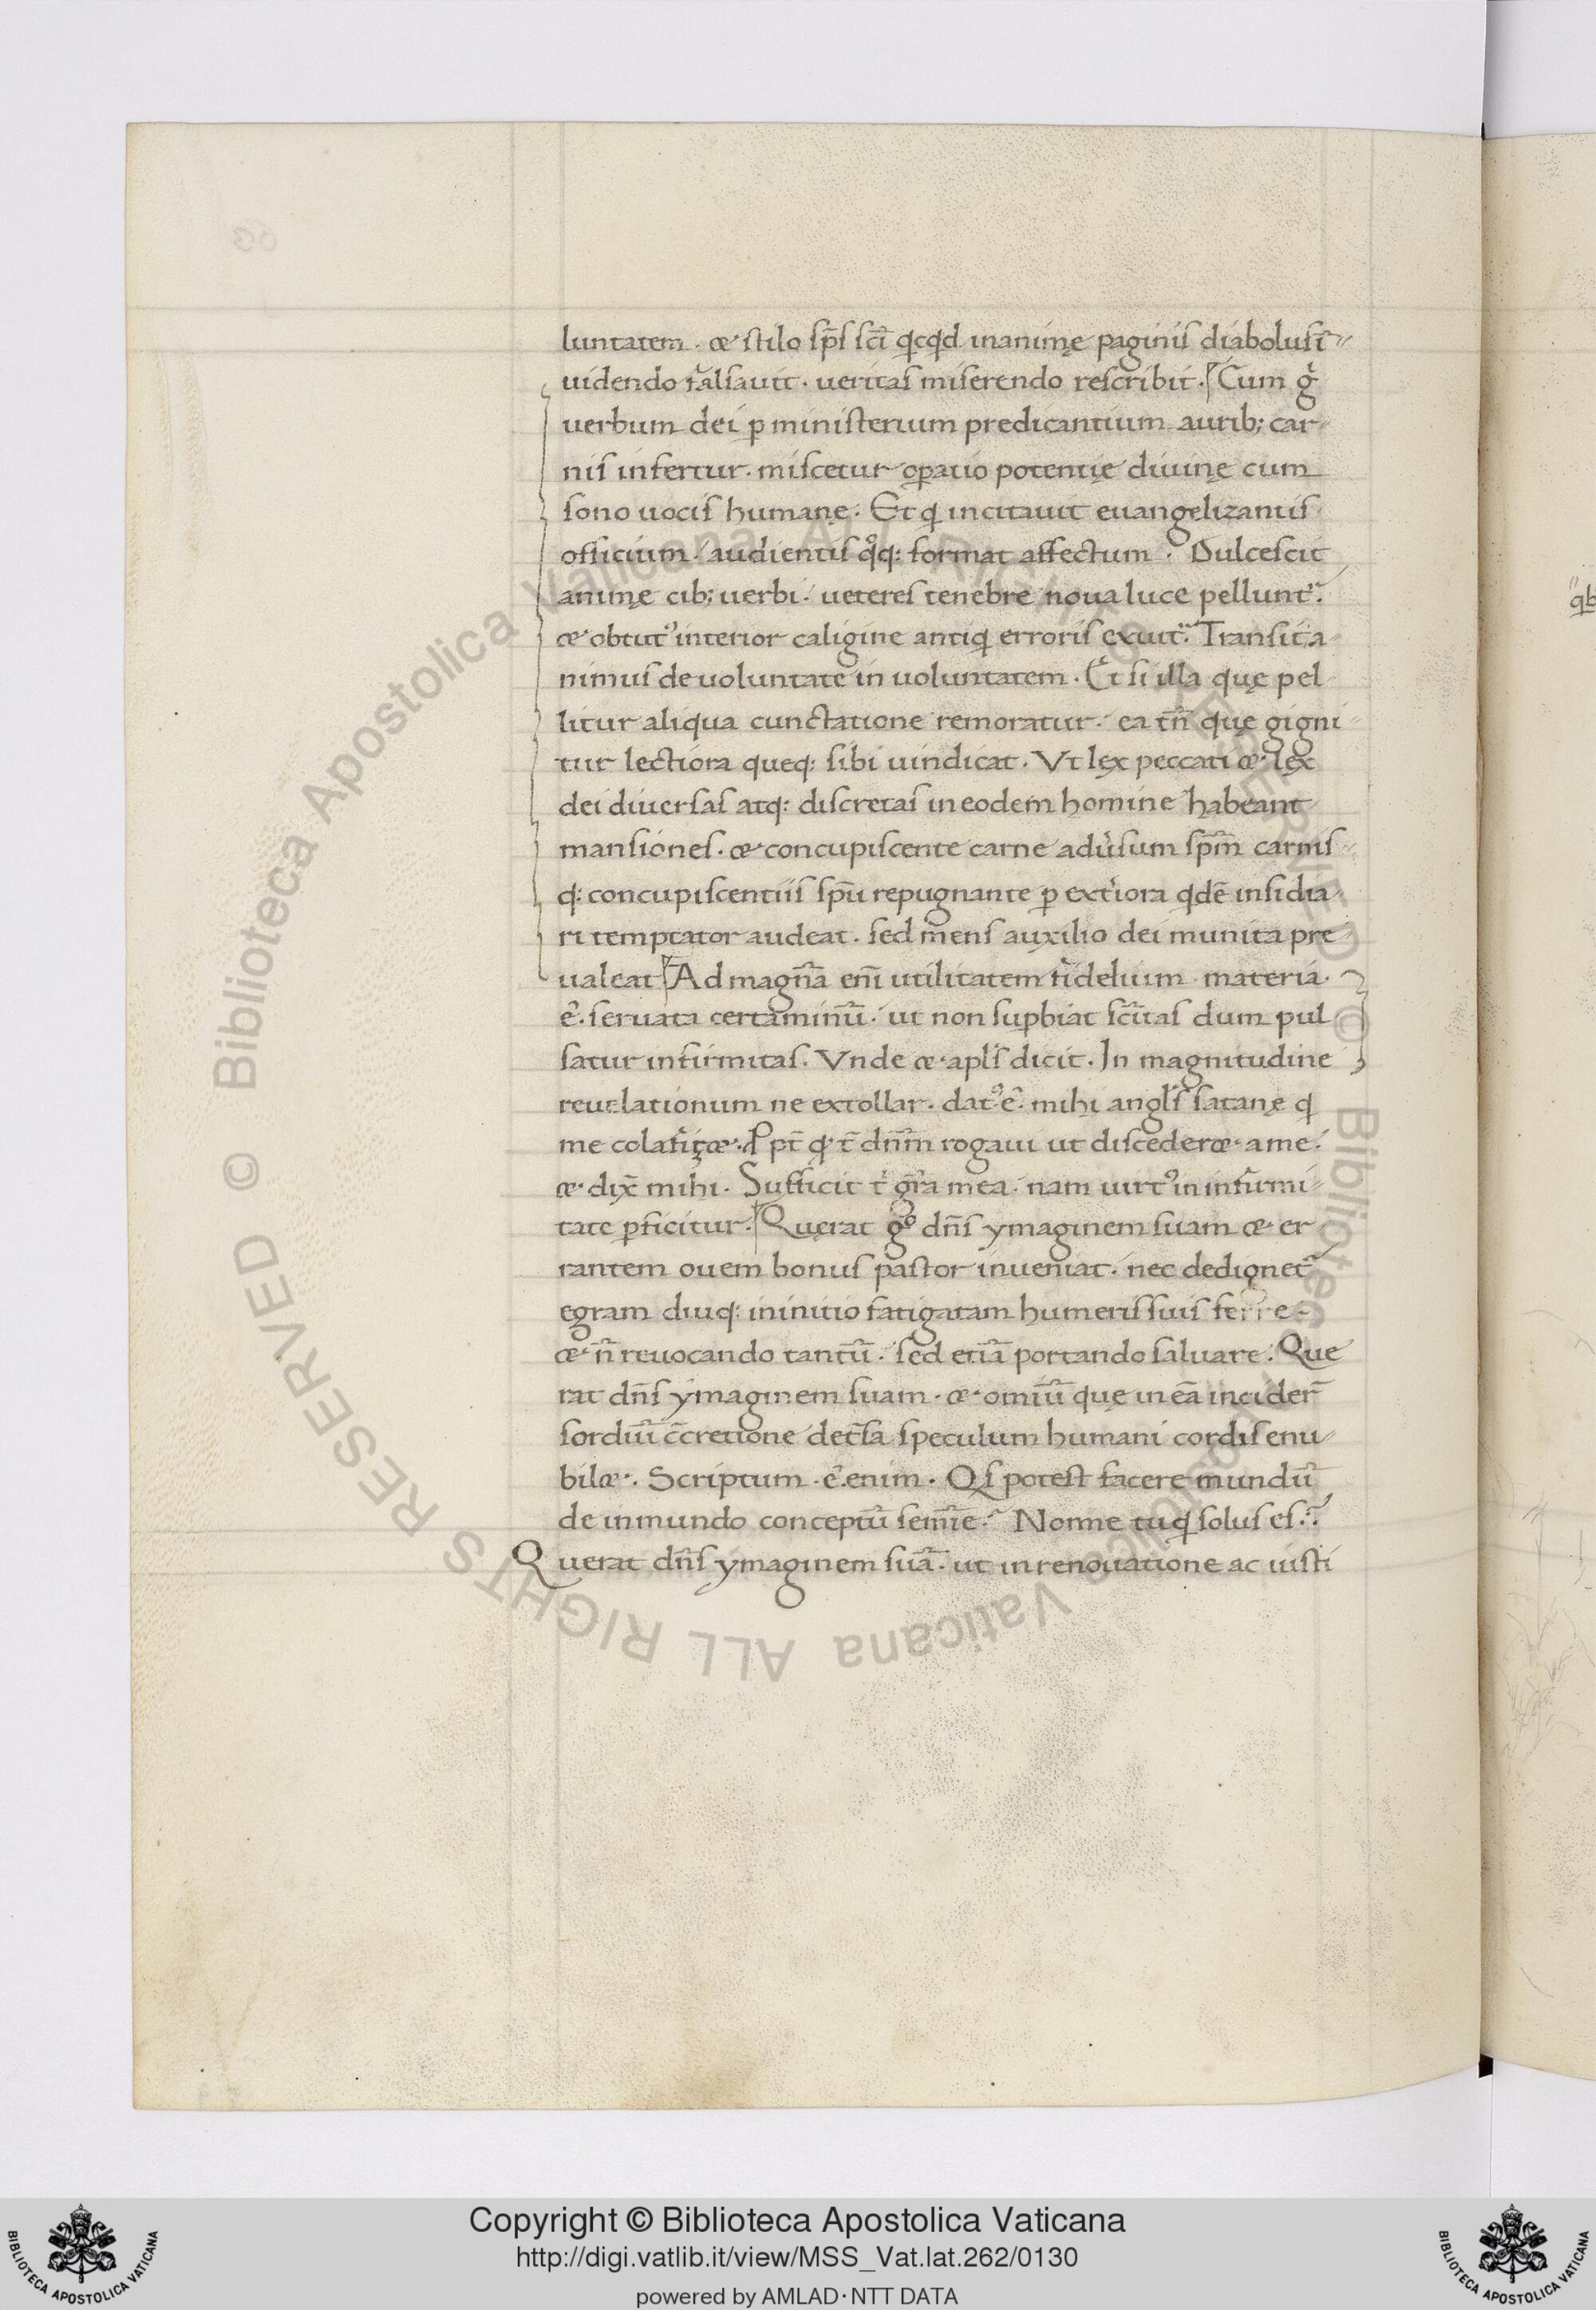 luntatem . & stilo sp̄s sc̄i qcqd in animę paginis diabolus ī-
uidendo falsavit . veritas miserendo rescribit . Cum g̊
verbum dei p ministerium predicantium aurib; car-
nis infertur . miscetur opatio potentię divinę cum
sono vocis humanę . Et q incitavit evangelizantis
officium . audientis qͦq: format affectum . Dulcescit
animę cib; verbi . veteres tenebre nova luce pellunt᷑ .
& obtutꝰ interior caligine antiq erroris exuit᷑ . Transit a-
nimus de voluntate in voluntatem . Et si illa quę pel-
litur aliqua cunctatione remoratur . ea tn̄ quę gigni-
tur lectiora queq: sibi vindicat . Vt lex peccati & lex
dei diversas atq: discretas in eodem homine habeant
mansiones . & concupiscente carne adv̾sum sp̄m carnis-
q: concupiscentiis sp̄u repugnante p ext̾iora qdē insidia-
ri temptator audeat . sed mens auxilio dei munita pre-
valeat Ad magnā enī utilitatem fidelium materia .
ē . servata certaminū . ut non supbiat sc̄itas dum pul-
satur infirmitas . Vnde & apl̄s dicit . In magnitudine
revelationum ne extollar . datꝰ ē . mihi angl̄s satanę q
me colafiz& . Ppt̄ q t̄ dn̄m rogavi ut disceder& a me .
& dix̄ mihi . Sufficit t' gr̄a mea . nam virtꝰ in infirmi-
tate pficitur . Quęrat gͦ dn̄s ymaginem suam & er-
rantem ovem bonus pastor inveniat . nec dedignet᷑
egram diuq: in initio fatigatam humeris suis ferre-
& n̄ revocando tantū . sed etiā portando salvare . Que-
rat dn̄s ymaginem suam . & omīu quę in eā incider̄
sordiū c̄cretione det̾sa speculum humani cordis enu-
bil& . Scriptum ē . enim . Qs potest facere mundū
de inmundo conceptū semīe . Nonne tu q solus es .
Querat dn̄s ymaginem suā . ut in renovatione ac iusti
Copyright © Biblioteca Apostolica Vaticana
http://digi.vatlib.it/view/MSS_Vat.lat.262/0130
powered by AMLAD·NTT DATA
BIBLIOTECA APOSTOLICA VATICANA
BIBLIOTECA APOSTOLICA VATICANA
© Biblioteca Apostolica Vaticana ALL RIGHTS RESERVED © Biblioteca Apostolica Vaticana ALL RIGHTS RESERVED